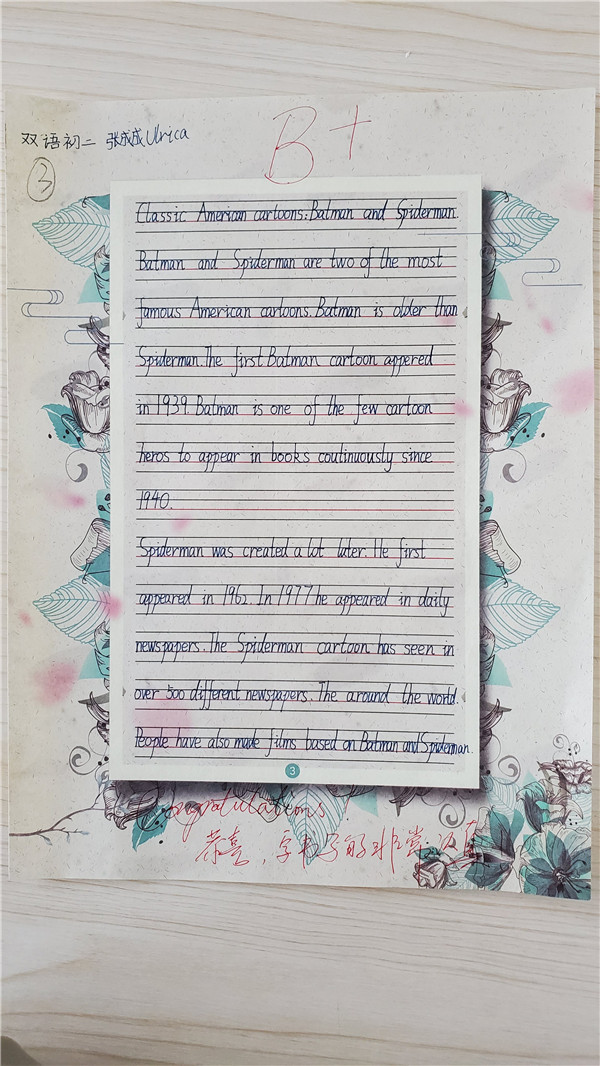 B+
双语初二 张成成 Ulrica
3
Classic American cartoons: Batman and Spiderman.
Batman and Spiderman are two of the most
famous American cartoons. Batman is older than
Spiderman. The first Batman cartoon appered
in 1939. Batman is one of the few cartoon
heros to appear in books coutinuously since
1940.
Spiderman was created a lot later. He first
appeared in 1962. In 1977 he appeared in daily
newspapers. The Spiderman cartoon has seen in
over 500 different newspapers. The around the world.
People have also made films based on Batman and Spiderman.
3
Congratulations
恭喜,字书写的非常认真